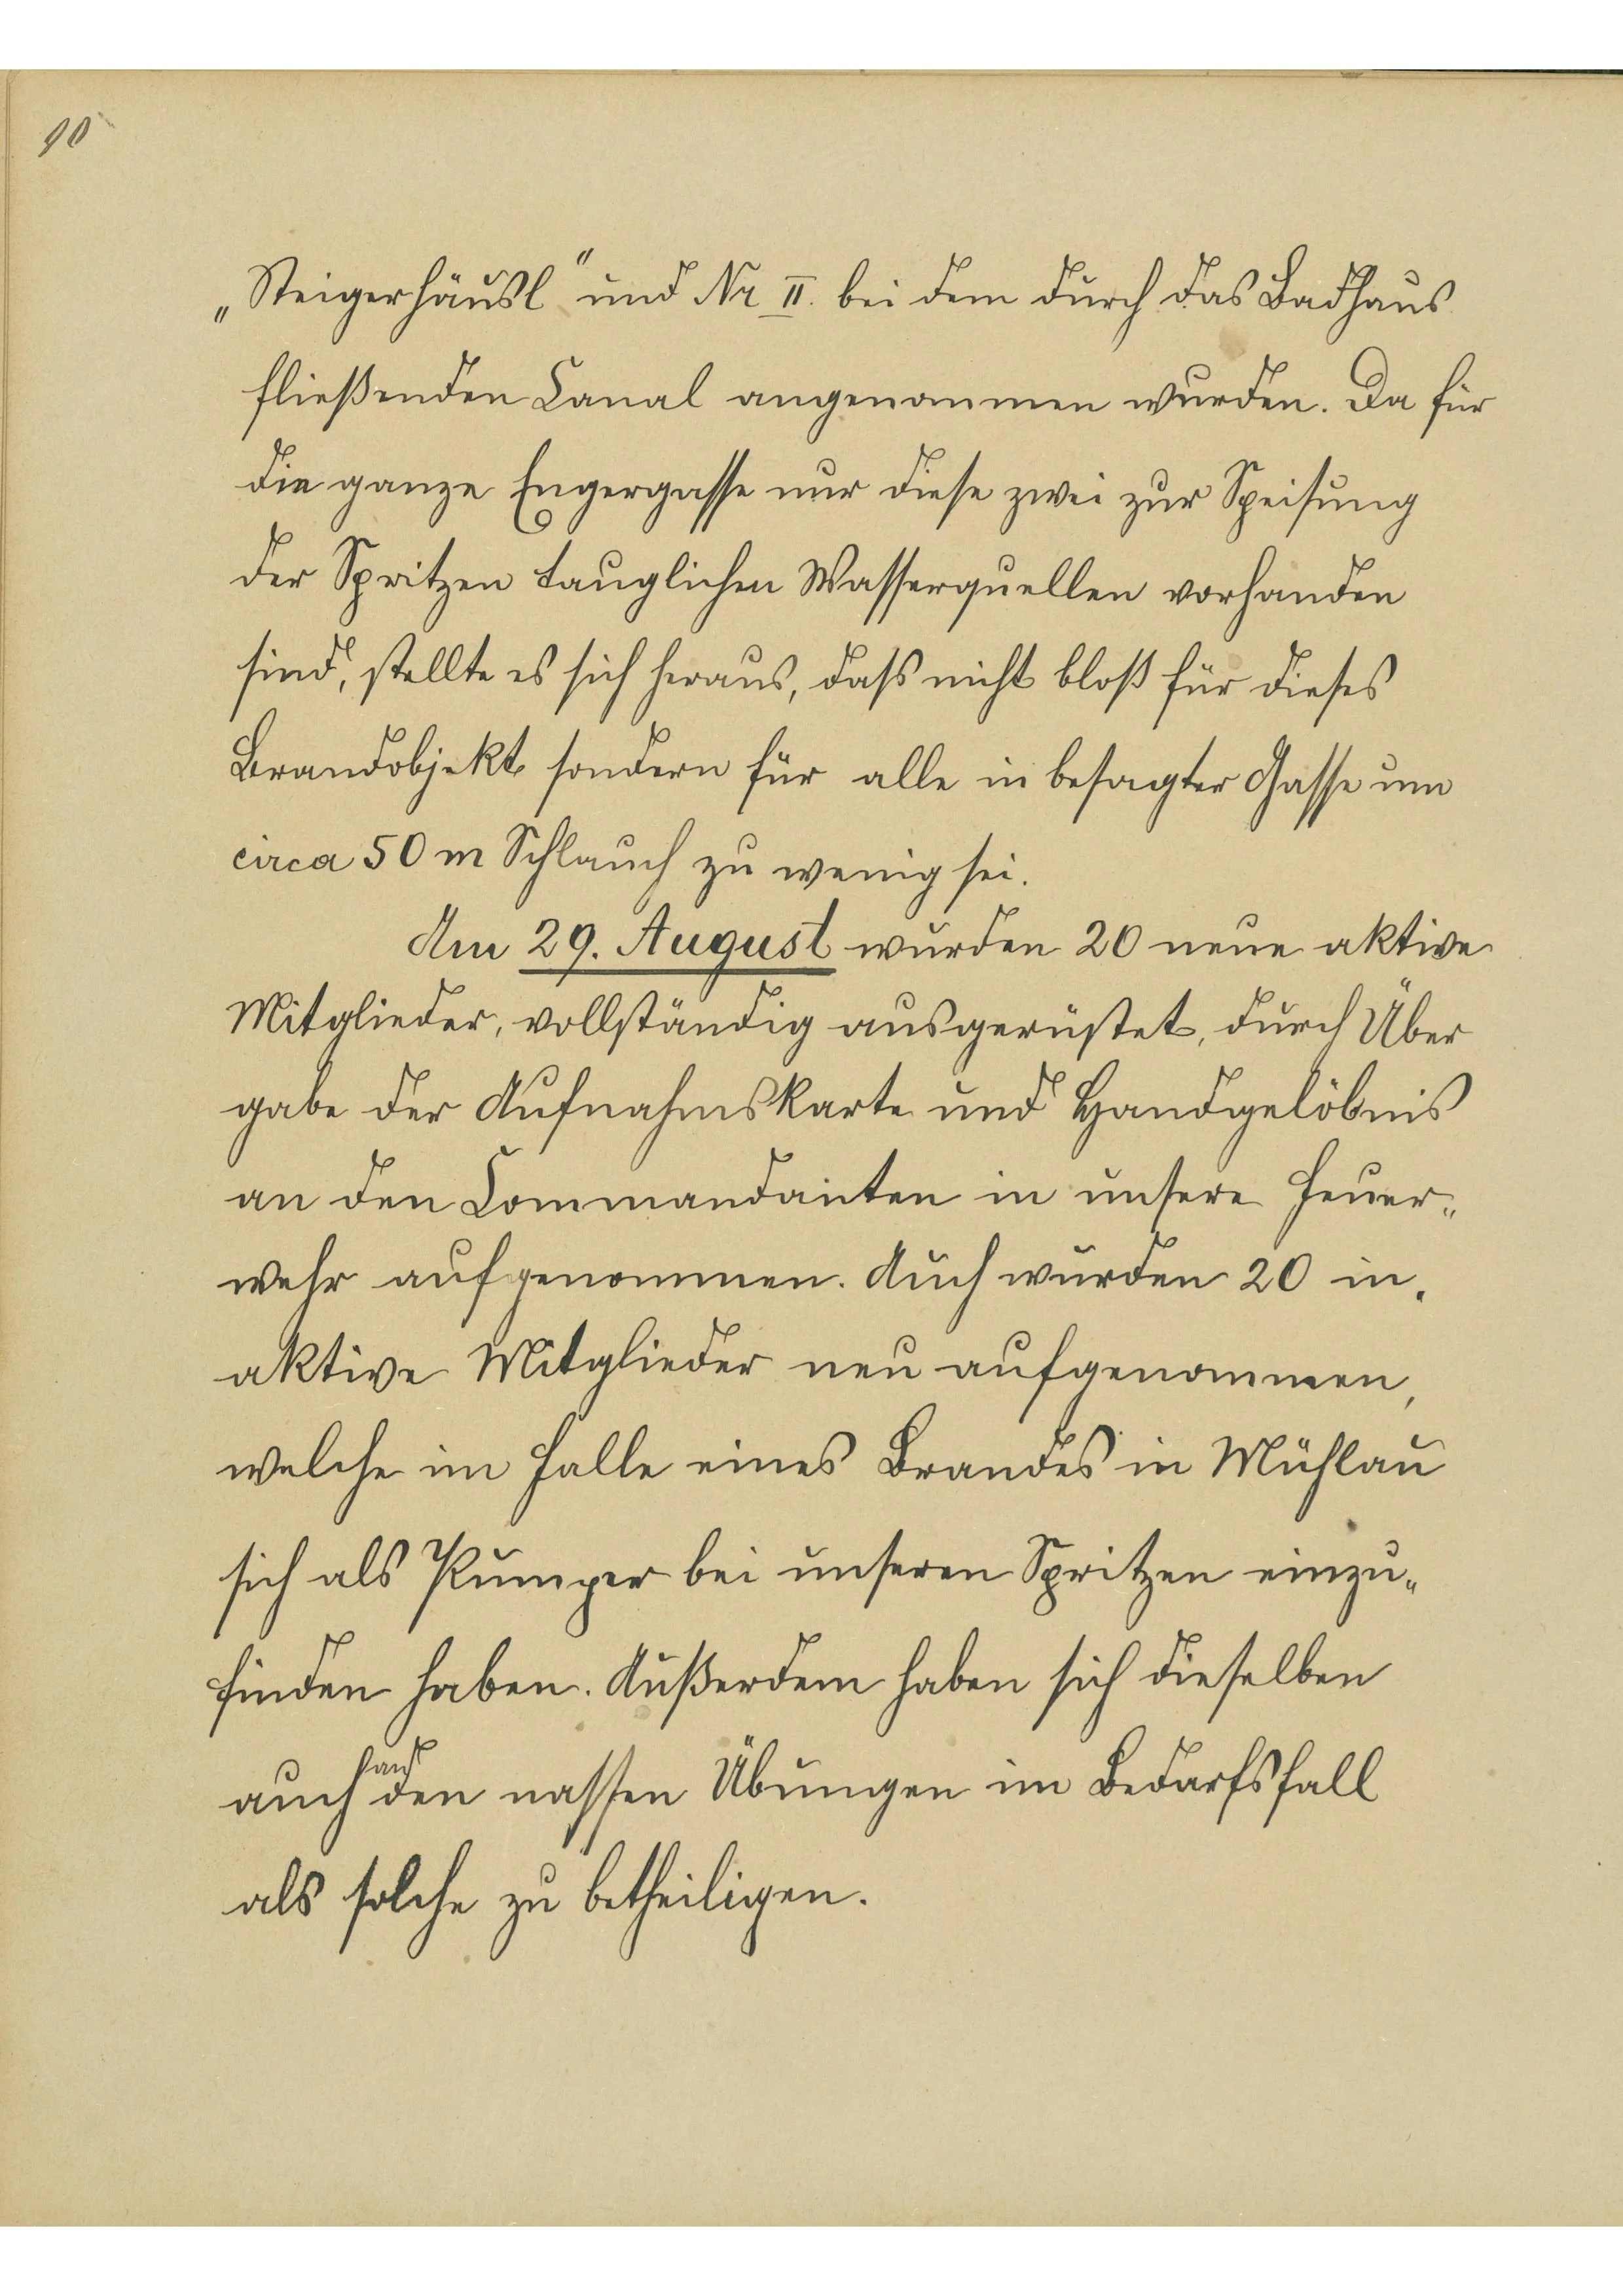 10
„Steigerhäusl" und Nr II. bei dem durch das Badhaus
fließenden Canal angenommen wurden. Da für
die ganze Engergasse nur diese zwei zur Speisung
der Spritzen tauglichen Wasserquellen vorhanden
sind, stellte es sich heraus, dass nicht bloß für dieses
Brandobjekt sondern für alle in besagter Gasse um
circa 50 m Schlauch zu wenig sei.
Am 29. August wurden 20 neue aktive
Mitglieder, vollständig ausgerüstet, durch Über
gabe der Aufnahmskarte und Handgelöbnis
an den Commandanten in unsere Feuer„
wehr aufgenommen. Auch wurden 20 in„
aktive Mitglieder neu aufgenommen,
welche im Falle eines Brandes in Mühlau
sich als Pumper bei unseren Spritzen einzu„
finden haben. Außerdem haben sich dieselben
auch an den nassen Übungen im Bedarfsfall
als solche zu betheiligen.